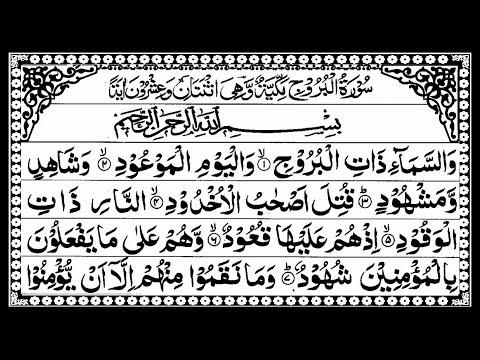 سُوْرَةُ الْبُرُوْجِ مَكِّيَّةٌ وَّهِيَ اثْنَتَانِ وَعِشْرُوْنَ اٰيَةً
بِسْمِ اللّٰهِ الرَّحْمٰنِ الرَّحِيْمِ
وَالسَّمَآءِ ذَاتِ الْبُرُوْجِ ۙ۱ وَالْيَوْمِ الْمَوْعُوْدِ ۙ۲ وَشَاهِدٍ
وَّمَشْهُوْدٍ ؕ۳ قُتِلَ اَصْحٰبُ الْاُخْدُوْدِ ۙ۴ النَّارِ ذَاتِ
الْوَقُوْدِ ۙ۵ اِذْ هُمْ عَلَيْهَا قُعُوْدٌ ۙ۶ وَّهُمْ عَلٰى مَا يَفْعَلُوْنَ
بِالْمُؤْمِنِيْنَ شُهُوْدٌ ؕ۷ وَمَا نَقَمُوْا مِنْهُمْ اِلَّاۤ اَنْ يُّؤْمِنُوْا